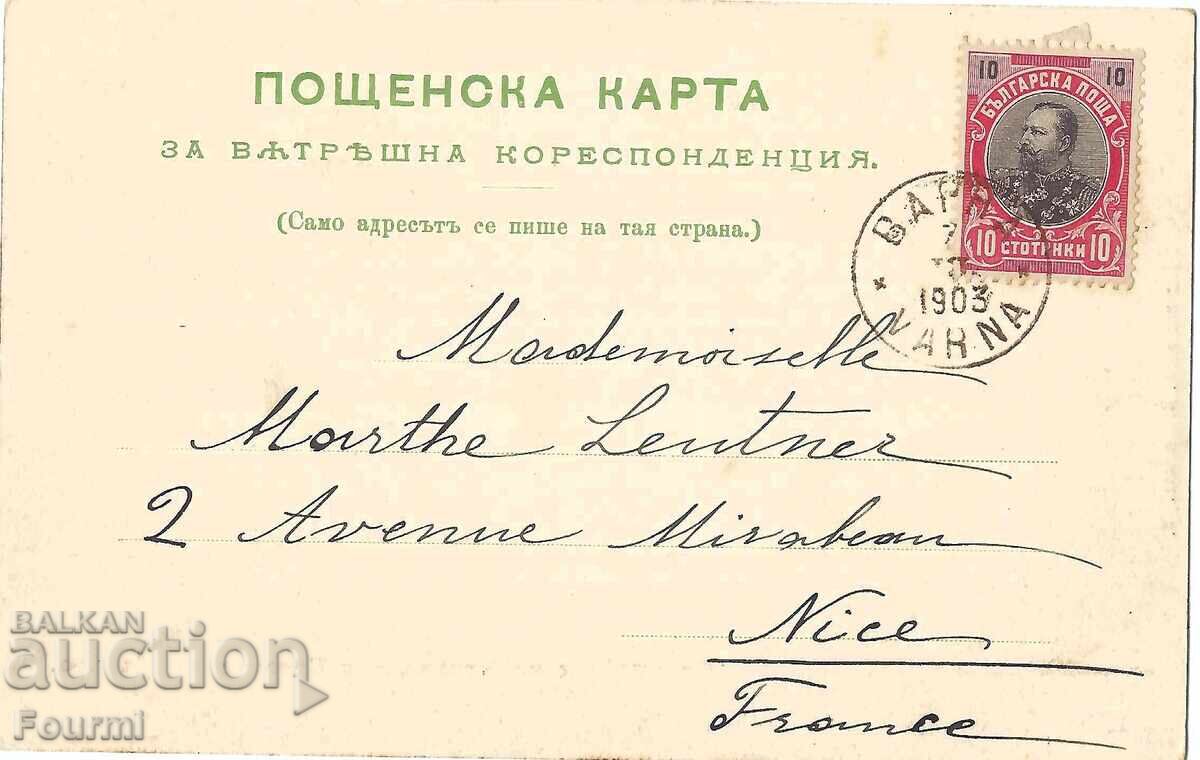 ПОЩЕНСКА КАРТА
ЗА ВѪТРѢШНА КОРЕСПОНДЕНЦИЯ.
(Само адресътъ се пише на тая страна.)
10 10
БЪЛГАРСКА ПОЩА
10 СТОТИНКИ 10
ВАРНА
7
1903
VARNA
Mademoiselle
Marthe Leutner
2 Avenue Mirabeau
Nice
France
BALKAN
auction
Fourmi